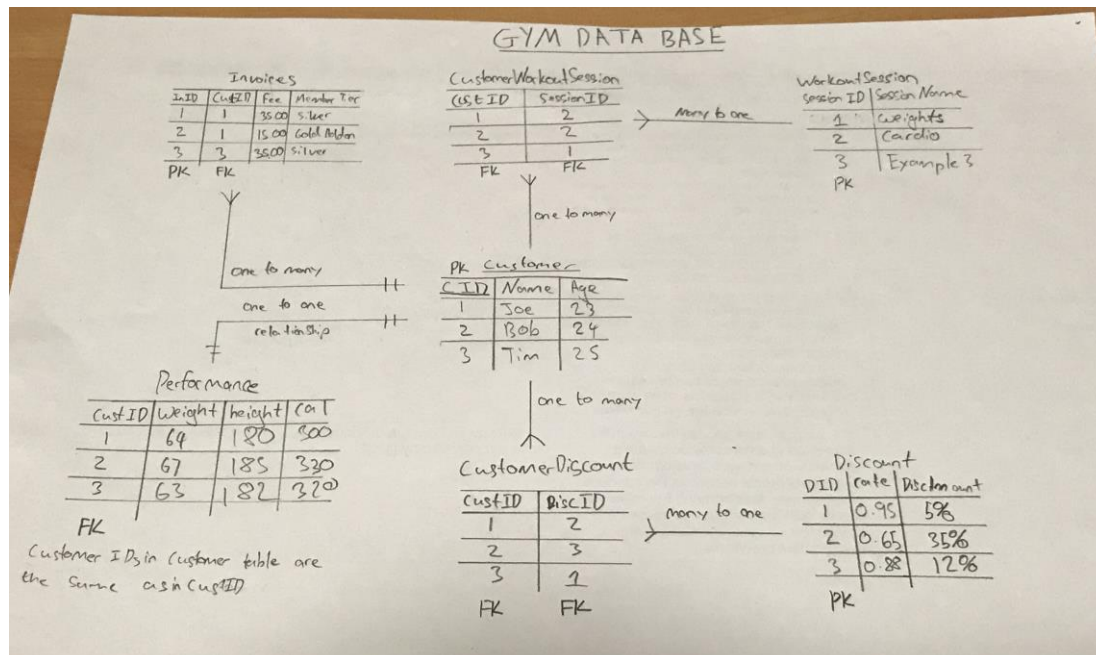 GYM DATA BASE
Invoices
InID CustID Fee Member Tier
1 1 35.00 Silver
2 1 15.00 Gold
3 3 35.00 Silver
PK FK
CustomerWorkoutSession
CustID SessionID
1 2
2 2
3 1
FK FK
many to one
WorkoutSession
Session ID Session Name
1 weights
2 Cardio
3 Example 3
PK
one to many
one to many
one to one
relationship
PK Customer
CID Name Age
1 Joe 23
2 Bob 24
3 Tim 25
Performance
CustID weight height cal
1 64 180 300
2 67 185 330
3 63 182 320
FK
Customer IDs in Customer table are
the same as in CustID
one to many
CustomerDiscount
CustID DiscID
1 2
2 3
3 1
FK FK
many to one
Discount
DID rate
1 0.95 5%
2 0.65 35%
3 0.88 12%
PK